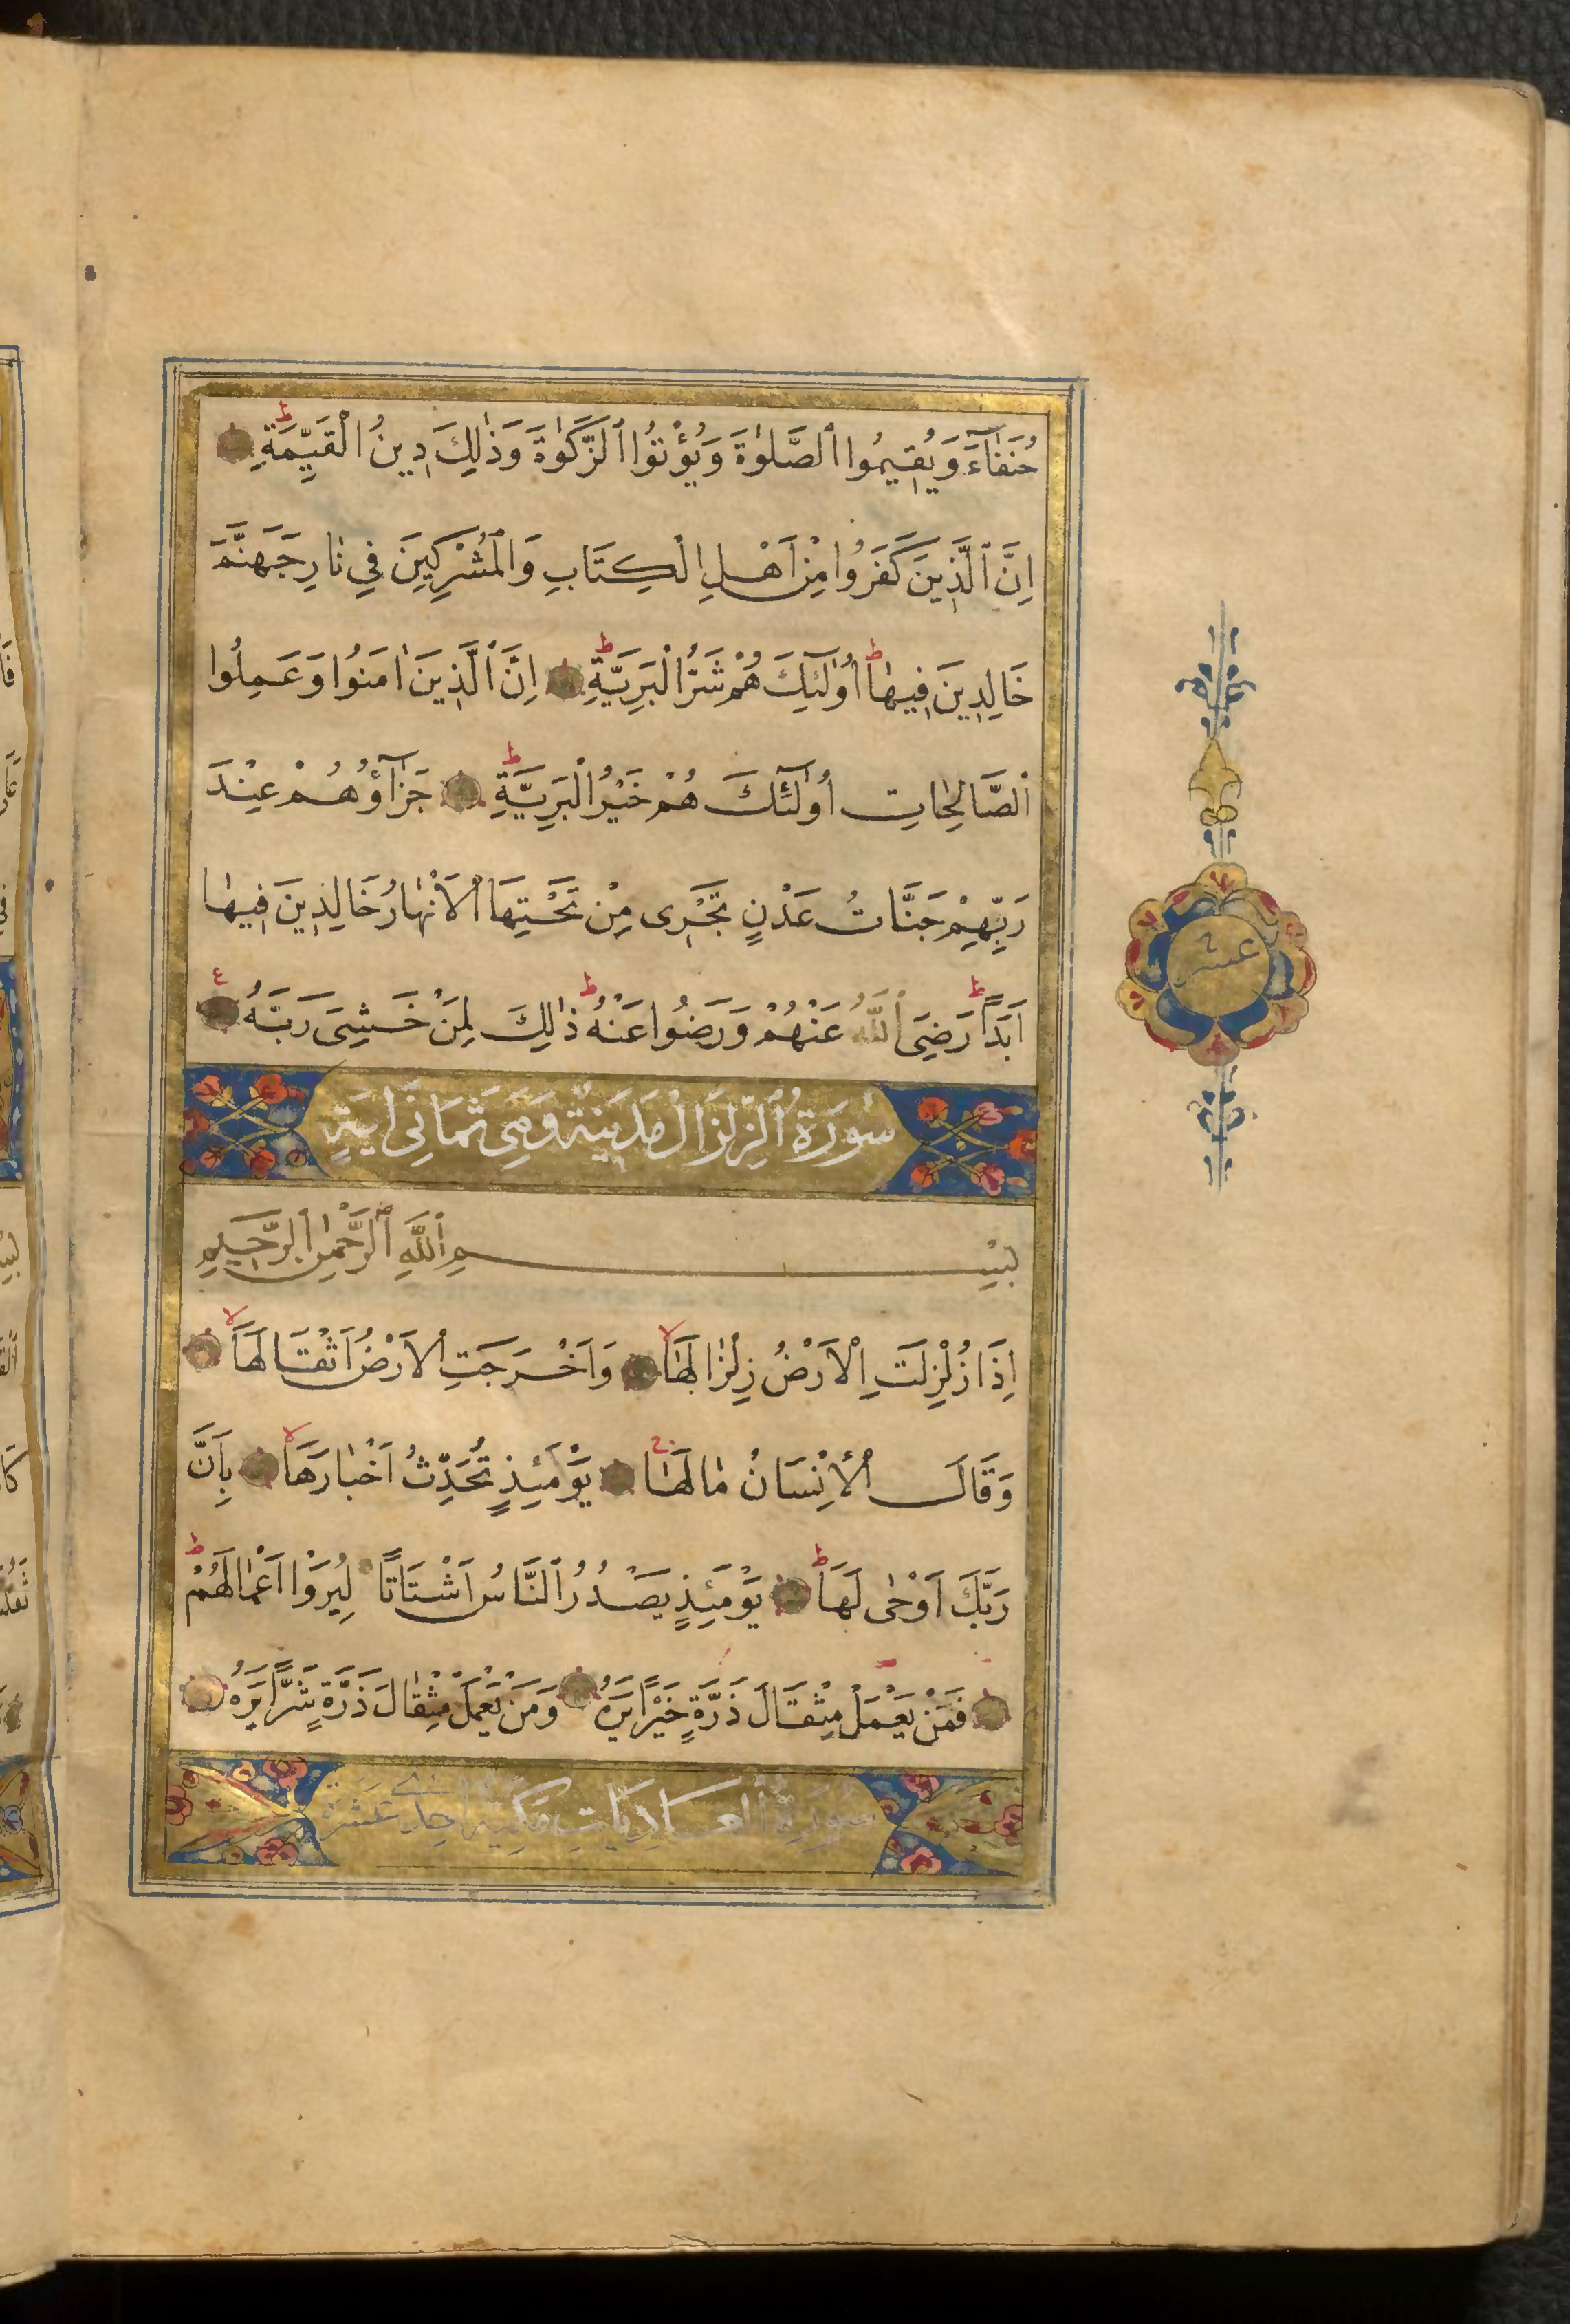 حُنَفَآءَ وَيُقِيمُوا ٱلصَّلٰوةَ وَيُؤْتُوا ٱلزَّكٰوةَ وَذٰلِكَ دِينُ الْقَيِّمَةِ ط
اِنَّ ٱلَّذِينَ كَفَرُوا مِنْ اَهْلِ الْكِتَابِ وَالْمُشْرِكِينَ فِي نَارِ جَهَنَّمَ
خَالِدِينَ فِيهٰا ط اُولٰٓئِكَ هُمْ شَرُّ الْبَرِيَّةِ ط اِنَّ ٱلَّذِينَ اٰمَنُوا وَعَمِلُوا
ٱلصَّالِحٰاتِ اُولٰٓئِكَ هُمْ خَيْرُ الْبَرِيَّةِ ط جَزَآؤُهُمْ عِنْدَ
رَبِّهِمْ جَنَّاتُ عَدْنٍ تَجْرِى مِنْ تَحْتِهَا الْاَنْهٰارُ خَالِدِينَ فِيهٰا
اَبَدًا ط رَضِىَ ٱللَّهُ عَنْهُمْ وَرَضُوا عَنْهُ ط ذٰلِكَ لِمَنْ خَشِىَ رَبَّهُ ع
سُورَةُ ٱلزِّلْزَالْ مَدَنِيَّةٌ وَهِىَ ثَمَانِىَ اٰيَةٍ
بِسْمِ ٱللَّهِ ٱلرَّحْمٰنِ ٱلرَّحِيمِ
اِذَا زُلْزِلَتِ الْاَرْضُ زِلْزَالَهٰا لا وَاَخْرَجَتِ الْاَرْضُ اَثْقَالَهَا لا
وَقَالَ الْاِنْسَانُ مٰا لَهٰا ج يَوْمَئِذٍ تُحَدِّثُ اَخْبٰارَهَا لا بِاَنَّ
رَبَّكَ اَوْحٰى لَهَا ط يَوْمَئِذٍ يَصْدُرُ ٱلنَّاسُ اَشْتَاتًا لِيُرَوْا اَعْمٰالَهُمْ ط
فَمَنْ يَعْمَلْ مِثْقَالَ ذَرَّةٍ خَيْرًا يَرَهُ وَمَنْ يَعْمَلْ مِثْقٰالَ ذَرَّةٍ شَرًّا يَرَهُ
سُورَةُ ٱلْعَادِيَاتِ مَكِّيَّةٌ اِحْدٰى عَشَرَةَ
عشر